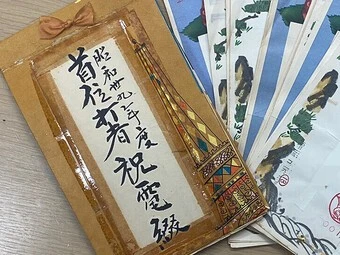 昭和廿九年度
首位打者祝電綴